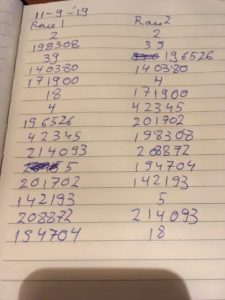 11-9-'19
Race 1 Race 2
2 2
198308 39
39 196526
140380 140380
171900 4
18 171900
4 42345
196526 201702
42345 198308
214093 208872
5 194704
201702 142193
142193 5
208872 214093
194704 18